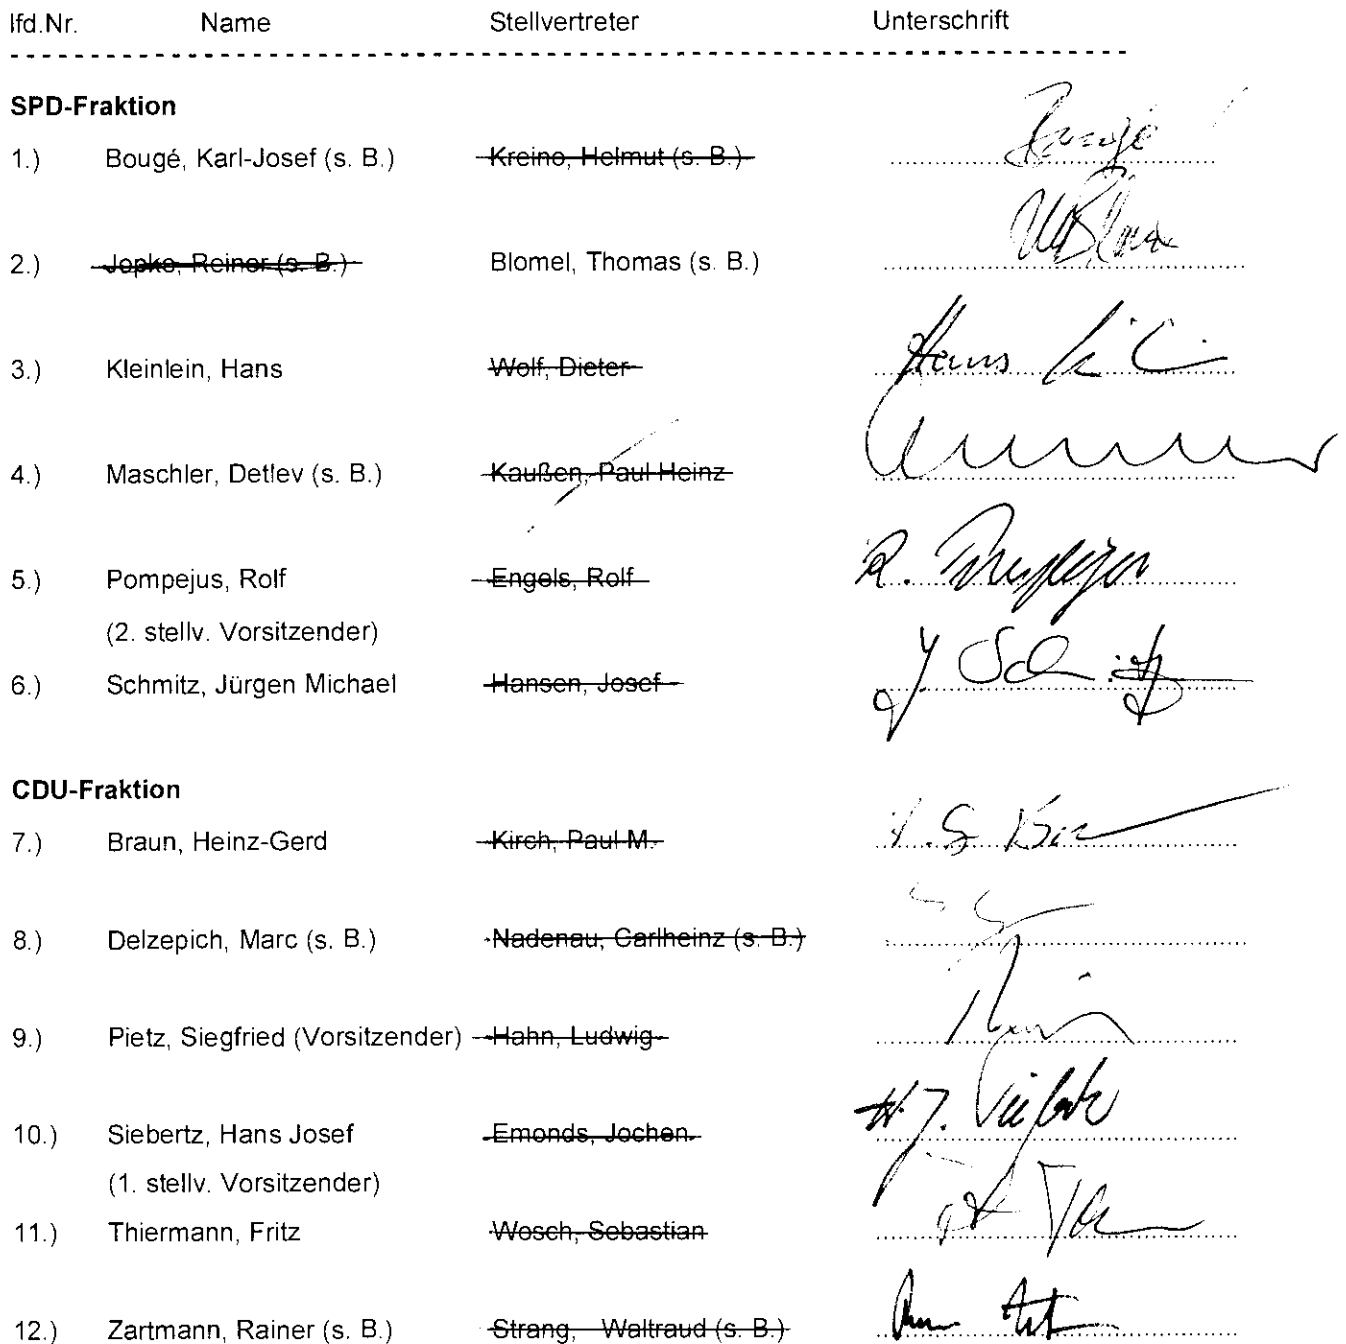 lfd.Nr. Name Stellvertreter Unterschrift
SPD-Fraktion
1.) Bougé, Karl-Josef (s. B.) Kreino, Helmut (s. B.) Bougé
2.) Jopke, Reiner (s. B.) Blomel, Thomas (s. B.)
3.) Kleinlein, Hans Wolf, Dieter Hans
4.) Maschler, Detlev (s. B.) Kaußen, Paul Heinz
5.) Pompejus, Rolf Engels, Rolf R. Pompejus
(2. stellv. Vorsitzender)
6.) Schmitz, Jürgen Michael Hansen, Josef J. Schmitz
CDU-Fraktion
7.) Braun, Heinz-Gerd Kirch, Paul M.
8.) Delzepich, Marc (s. B.) Nadenau, Carlheinz (s. B.)
9.) Pietz, Siegfried (Vorsitzender) Hahn, Ludwig
10.) Siebertz, Hans Josef Emonds, Jochen H. J. Siebertz
(1. stellv. Vorsitzender)
11.) Thiermann, Fritz Wosch, Sebastian
12.) Zartmann, Rainer (s. B.) Strang, Waltraud (s. B.)